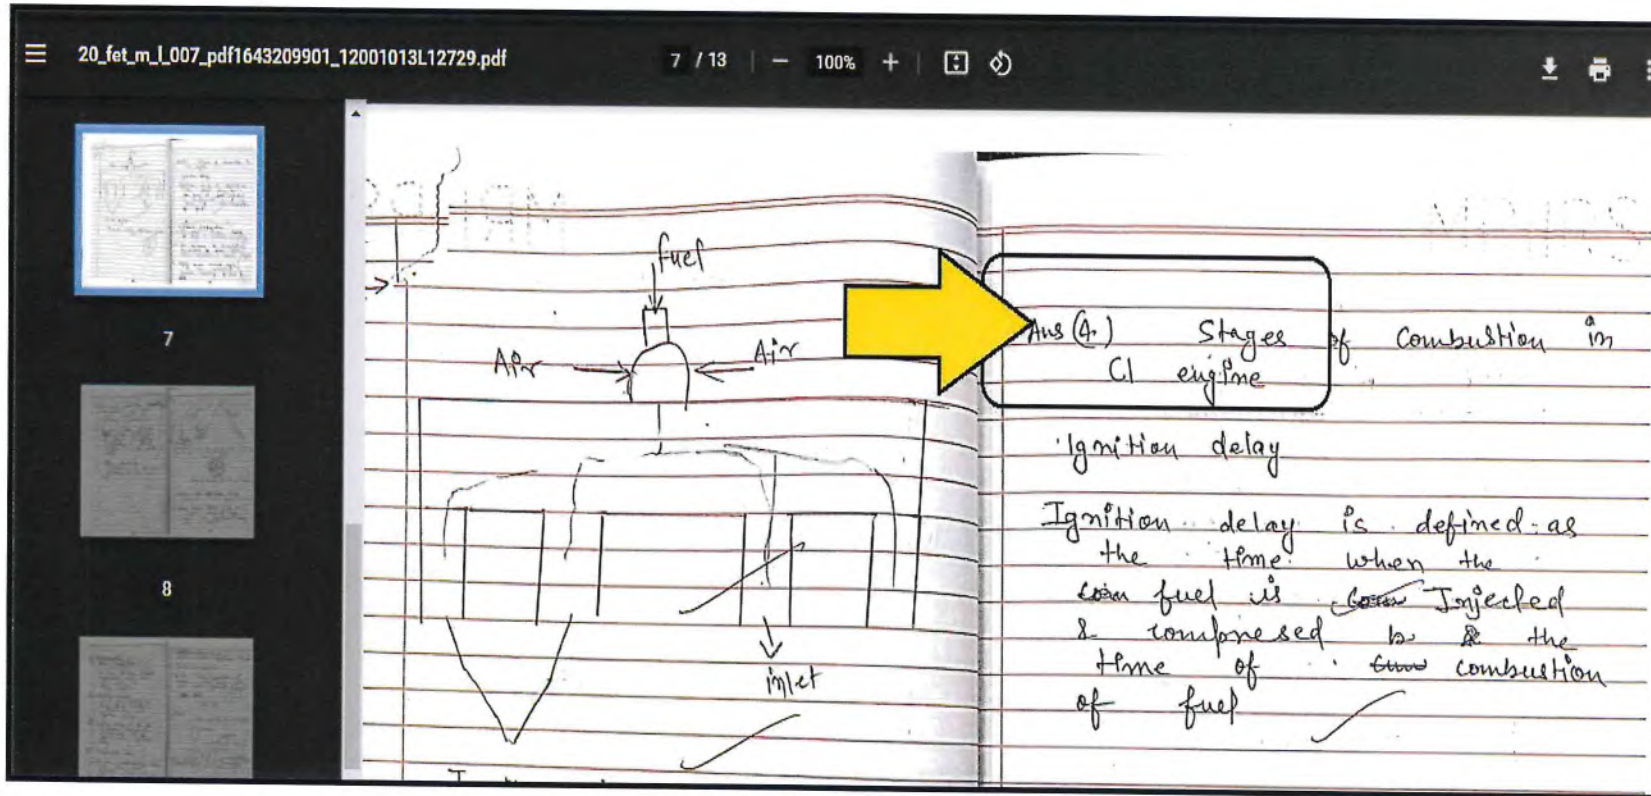 20_fet_m_l_007_pdf1643209901_12001013L12729.pdf
7 / 13
100%
7
8
fuel
Air
Air
inlet
Ans (4.) Stages of Combustion in
CI engine
Ignition delay
Ignition delay is defined as
the time when the
fuel is Injected
& compresed to the
time of combustion
of fuel